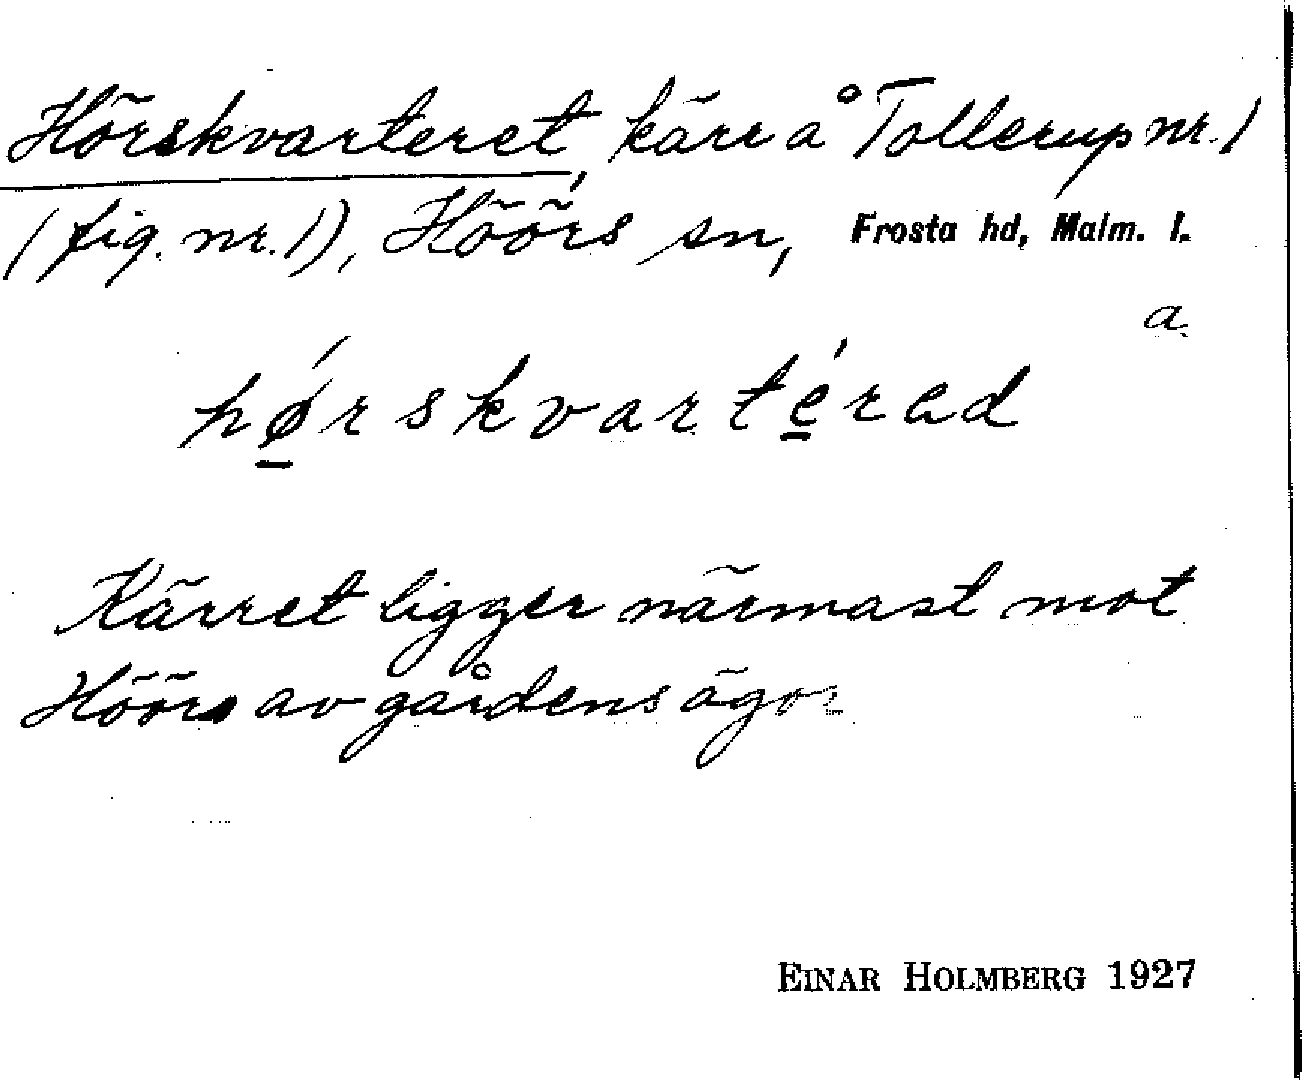 Hörskvarteret, kärr å Tollerup nr. 1
(fig. nr. 1), Höörs sn, Frosta hd, Malm. l.
a.
hǿ̱rskvarté̱rad
Kärret ligger närmast mot
Höörs av gårdens ägor
EINAR HOLMBERG 1927